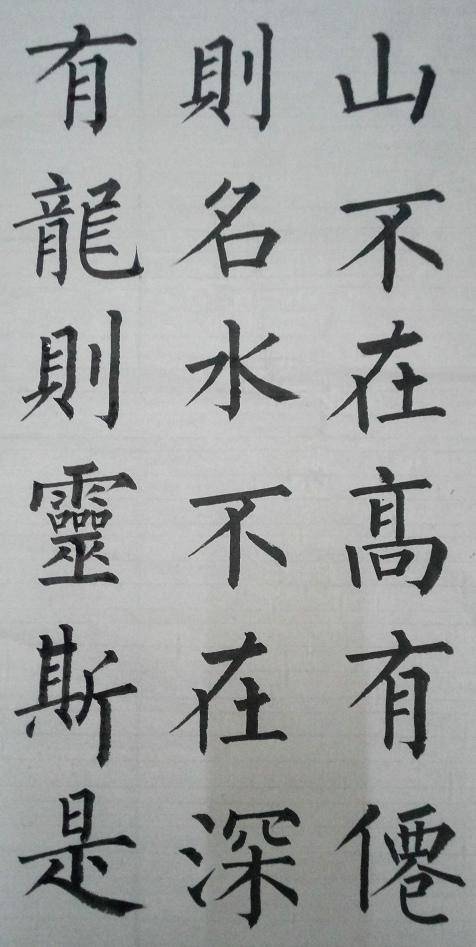 山不在髙有僊
則名水不在深
有龍則靈斯是